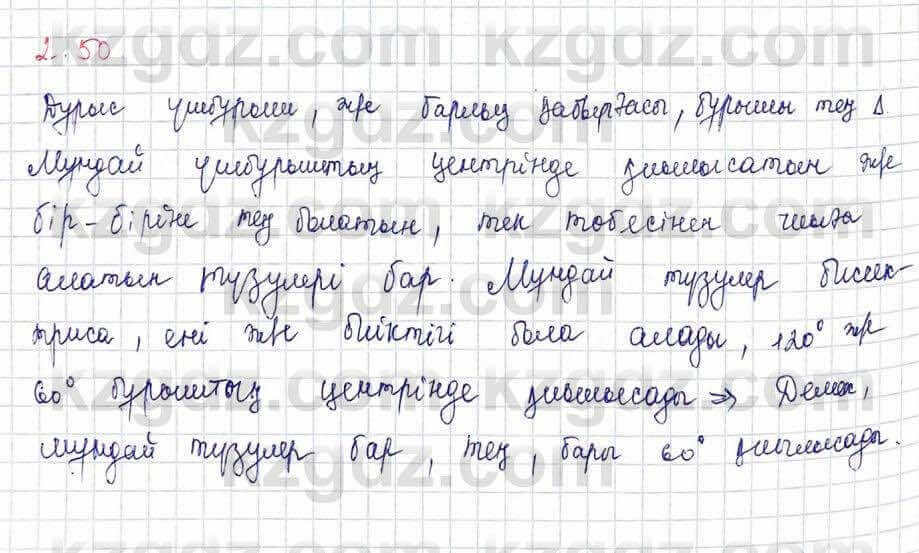 kzgdz.com kzgdz.com
2.50
Дұрыс үшбұрыш, же барлық қабырғасы, бұрышы тең Δ
Мұндай үшбұрыштың центрінде қиылысатын же
бір-біріне тең болатын, тек төбесінен шыға
алатын түзулері бар. Мұндай түзулер биссек-
триса, ені же биіктігі бола алады, 120° же
60° бұрыштың центрінде қиылысады ⇒ Демек,
мұндай түзулер бар, тең, бары 60° қиылысады.